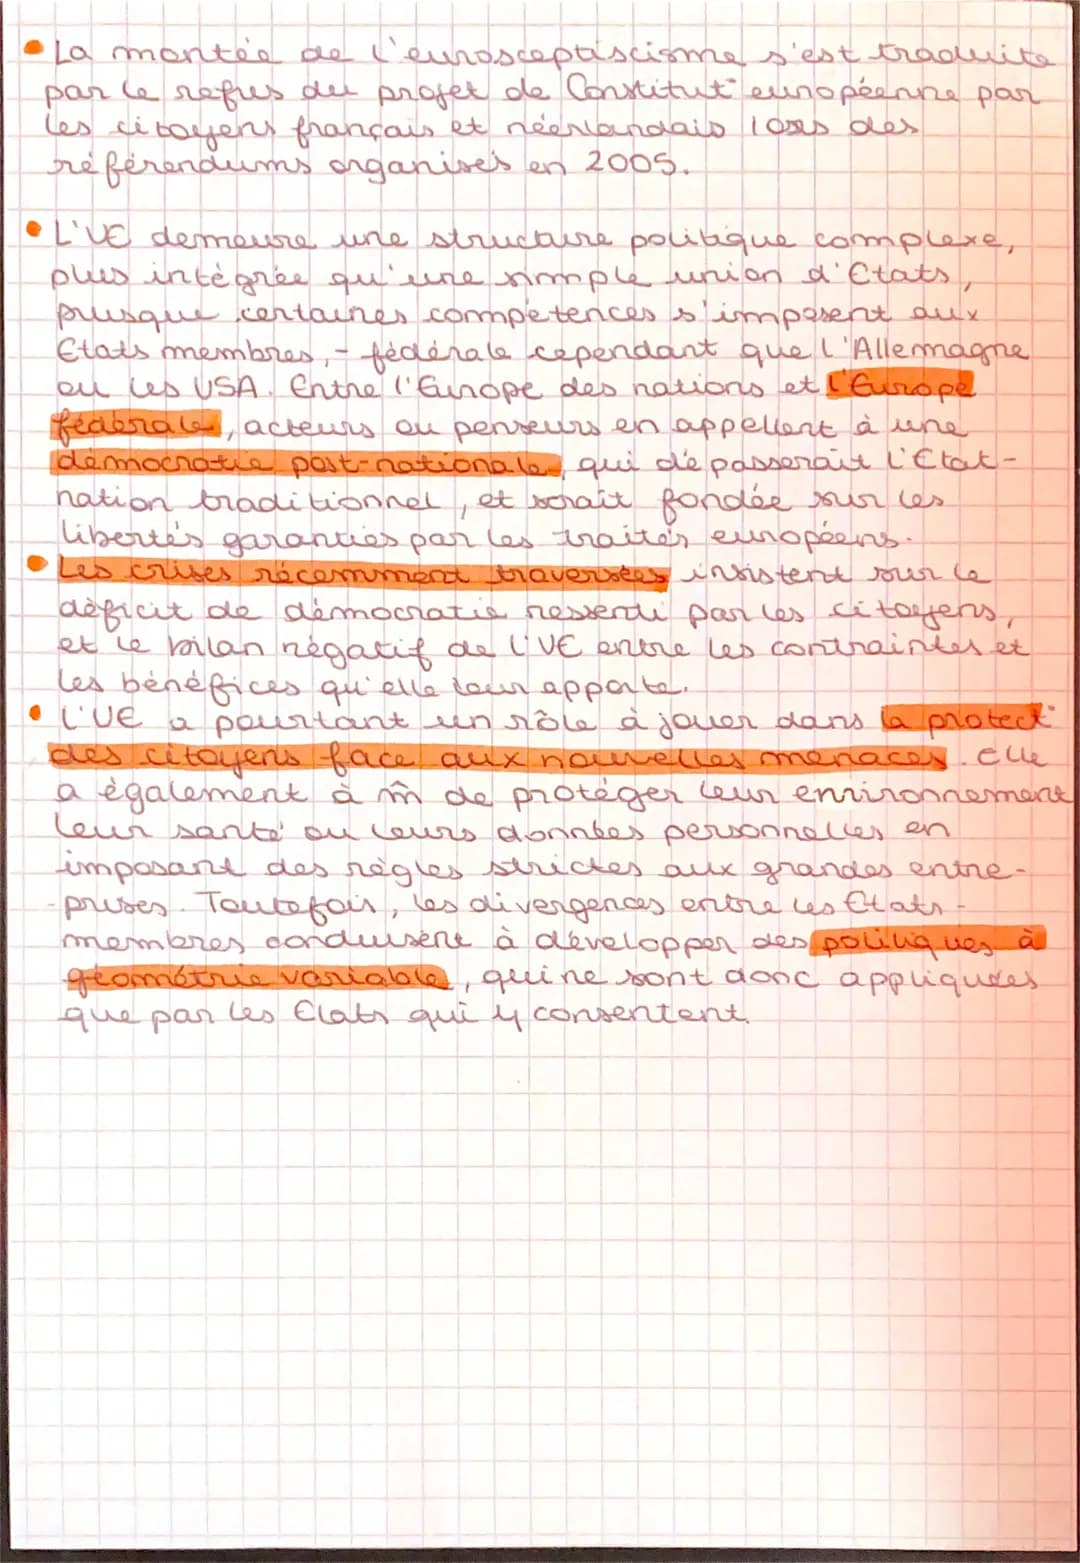 • La montée de l'eurosceptiscisme s'est traduite
par le refus du projet de Constitut° européenne par
les citoyens français et néerlandais lors des
référendums organisés en 2005.
• L'UE demeure une structure politique complexe,
plus intégrée qu'une simple union d'Etats,
puisque certaines compétences s'imposent aux
Etats membres, - fédérale cependant que l'Allemagne
ou les USA. Entre l'Europe des nations et l'Europe
fédérale, acteurs ou penseurs en appellent à une
démocratie post-nationale, qui dépasserait l'Etat-
nation traditionnel, et serait fondée sur les
libertés garanties par les traités européens.
• Les crises récemment traversées insistent sur le
déficit de démocratie ressenti par les citoyens,
et le bilan négatif de l'UE entre les contraintes et
les bénéfices qu'elle leur apporte.
• L'UE a pourtant un rôle à jouer dans la protect°
des citoyens face aux nouvelles menaces. Elle
a également à m̂ de protéger leur environnement
leur santé ou leurs données personnelles en
imposant des règles strictes aux grandes entre-
prises. Toutefois, les divergences entre les Etats-
membres conduisent à développer des politiques à
géométrie variable, qui ne sont donc appliquées
que par les Etats qui y consentent.